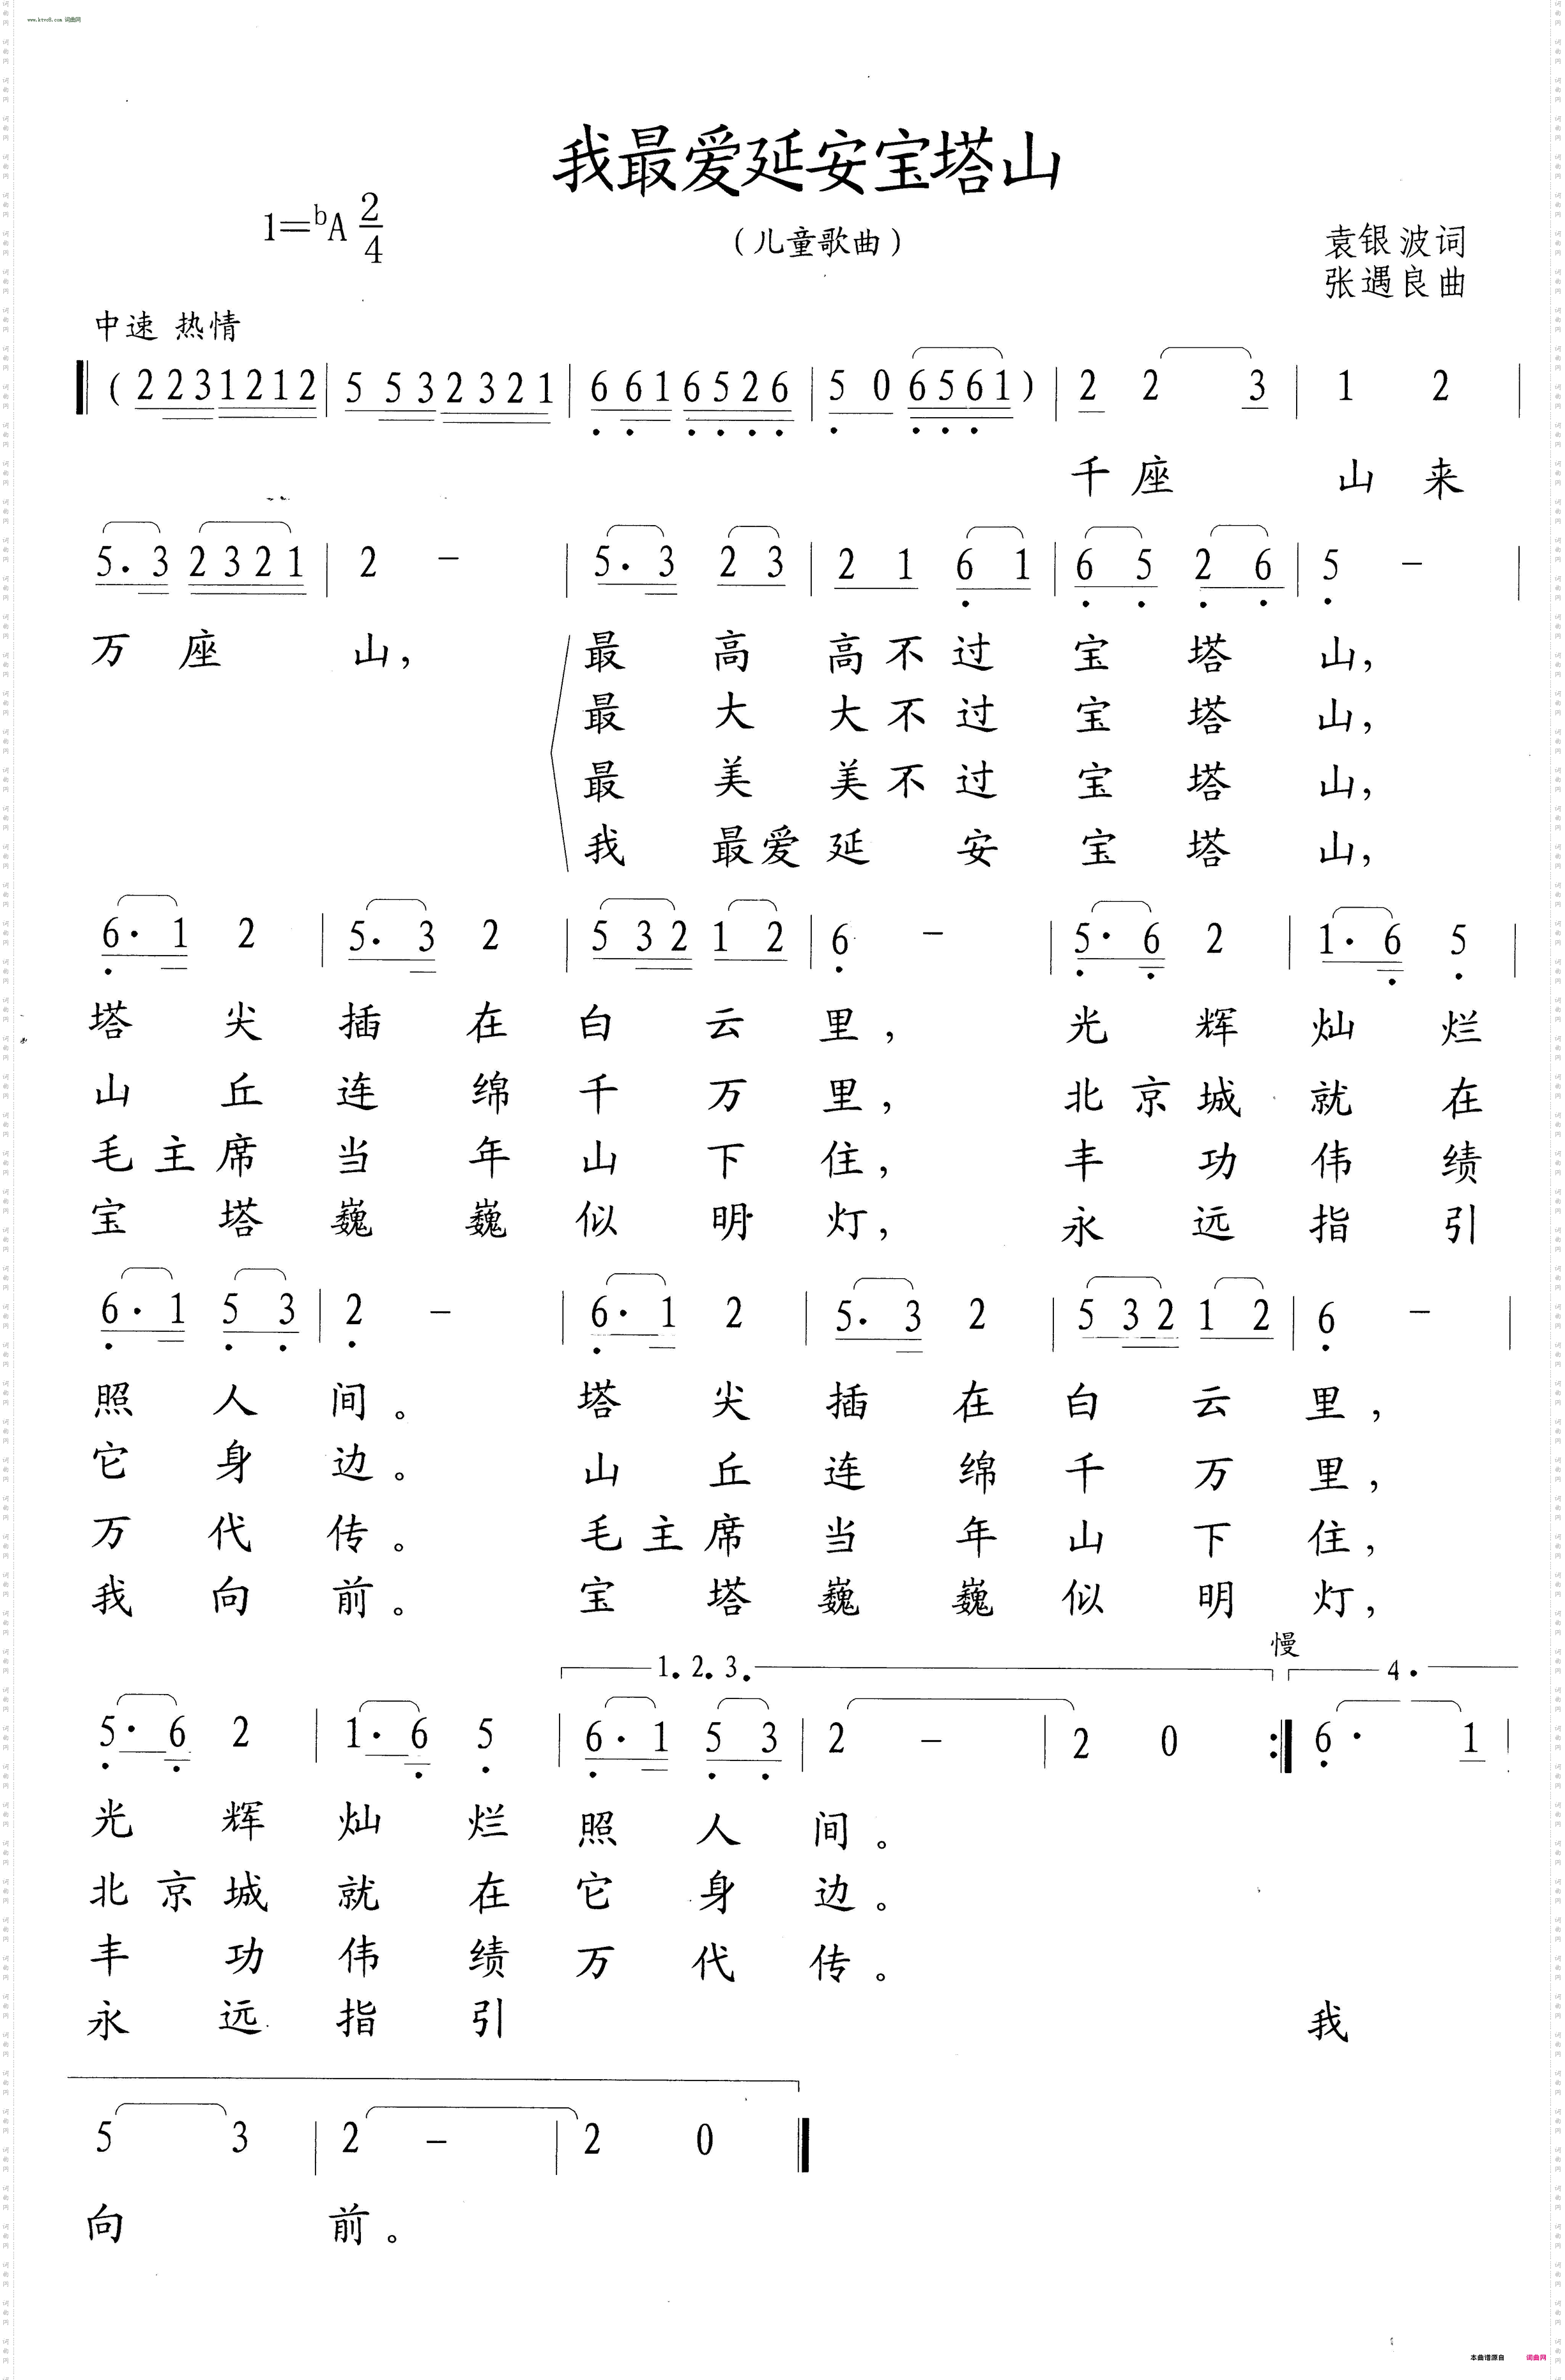 www.ktvc8.com 词曲网
我最爱延安宝塔山
1=ᵇA 2/4
（儿童歌曲）
袁银波词
张遇良曲
中速 热情
( 2 2 3 1 2 1 2 | 5 5 3 2 3 2 1 | 6 6 1 6 5 2 6 | 5 0 6 5 6 1 ) | 2 2 3 | 1 2 |
千座 山来
5. 3 2 3 2 1 | 2 - | 5. 3 2 3 | 2 1 6 1 | 6 5 2 6 | 5 - |
万座 山， 最 高 高不过 宝 塔 山，
最 大 大不过 宝 塔 山，
最 美 美不过 宝 塔 山，
我 最爱延 安 宝 塔 山，
6. 1 2 | 5. 3 2 | 5 3 2 1 2 | 6 - | 5. 6 2 | 1. 6 5 |
塔 尖 插 在 白 云 里， 光 辉 灿 烂
山 丘 连 绵 千 万 里， 北京城 就 在
毛主席 当 年 山 下 住， 丰 功 伟 绩
宝 塔 巍 巍 似 明 灯， 永 远 指 引
6. 1 5 3 | 2 - | 6. 1 2 | 5. 3 2 | 5 3 2 1 2 | 6 - |
照 人 间。 塔 尖 插 在 白 云 里，
它 身 边。 山 丘 连 绵 千 万 里，
万 代 传。 毛主席 当 年 山 下 住，
我 向 前。 宝 塔 巍 巍 似 明 灯，
1. 2. 3. 慢 4.
5. 6 2 | 1. 6 5 | 6. 1 5 3 | 2 - | 2 0 :‖ 6. 1 |
光 辉 灿 烂 照 人 间。
北京城 就 在 它 身 边。
丰 功 伟 绩 万 代 传。
永 远 指 引 我
5 3 | 2 - | 2 0 ‖
向 前。
本曲谱源自 词曲网